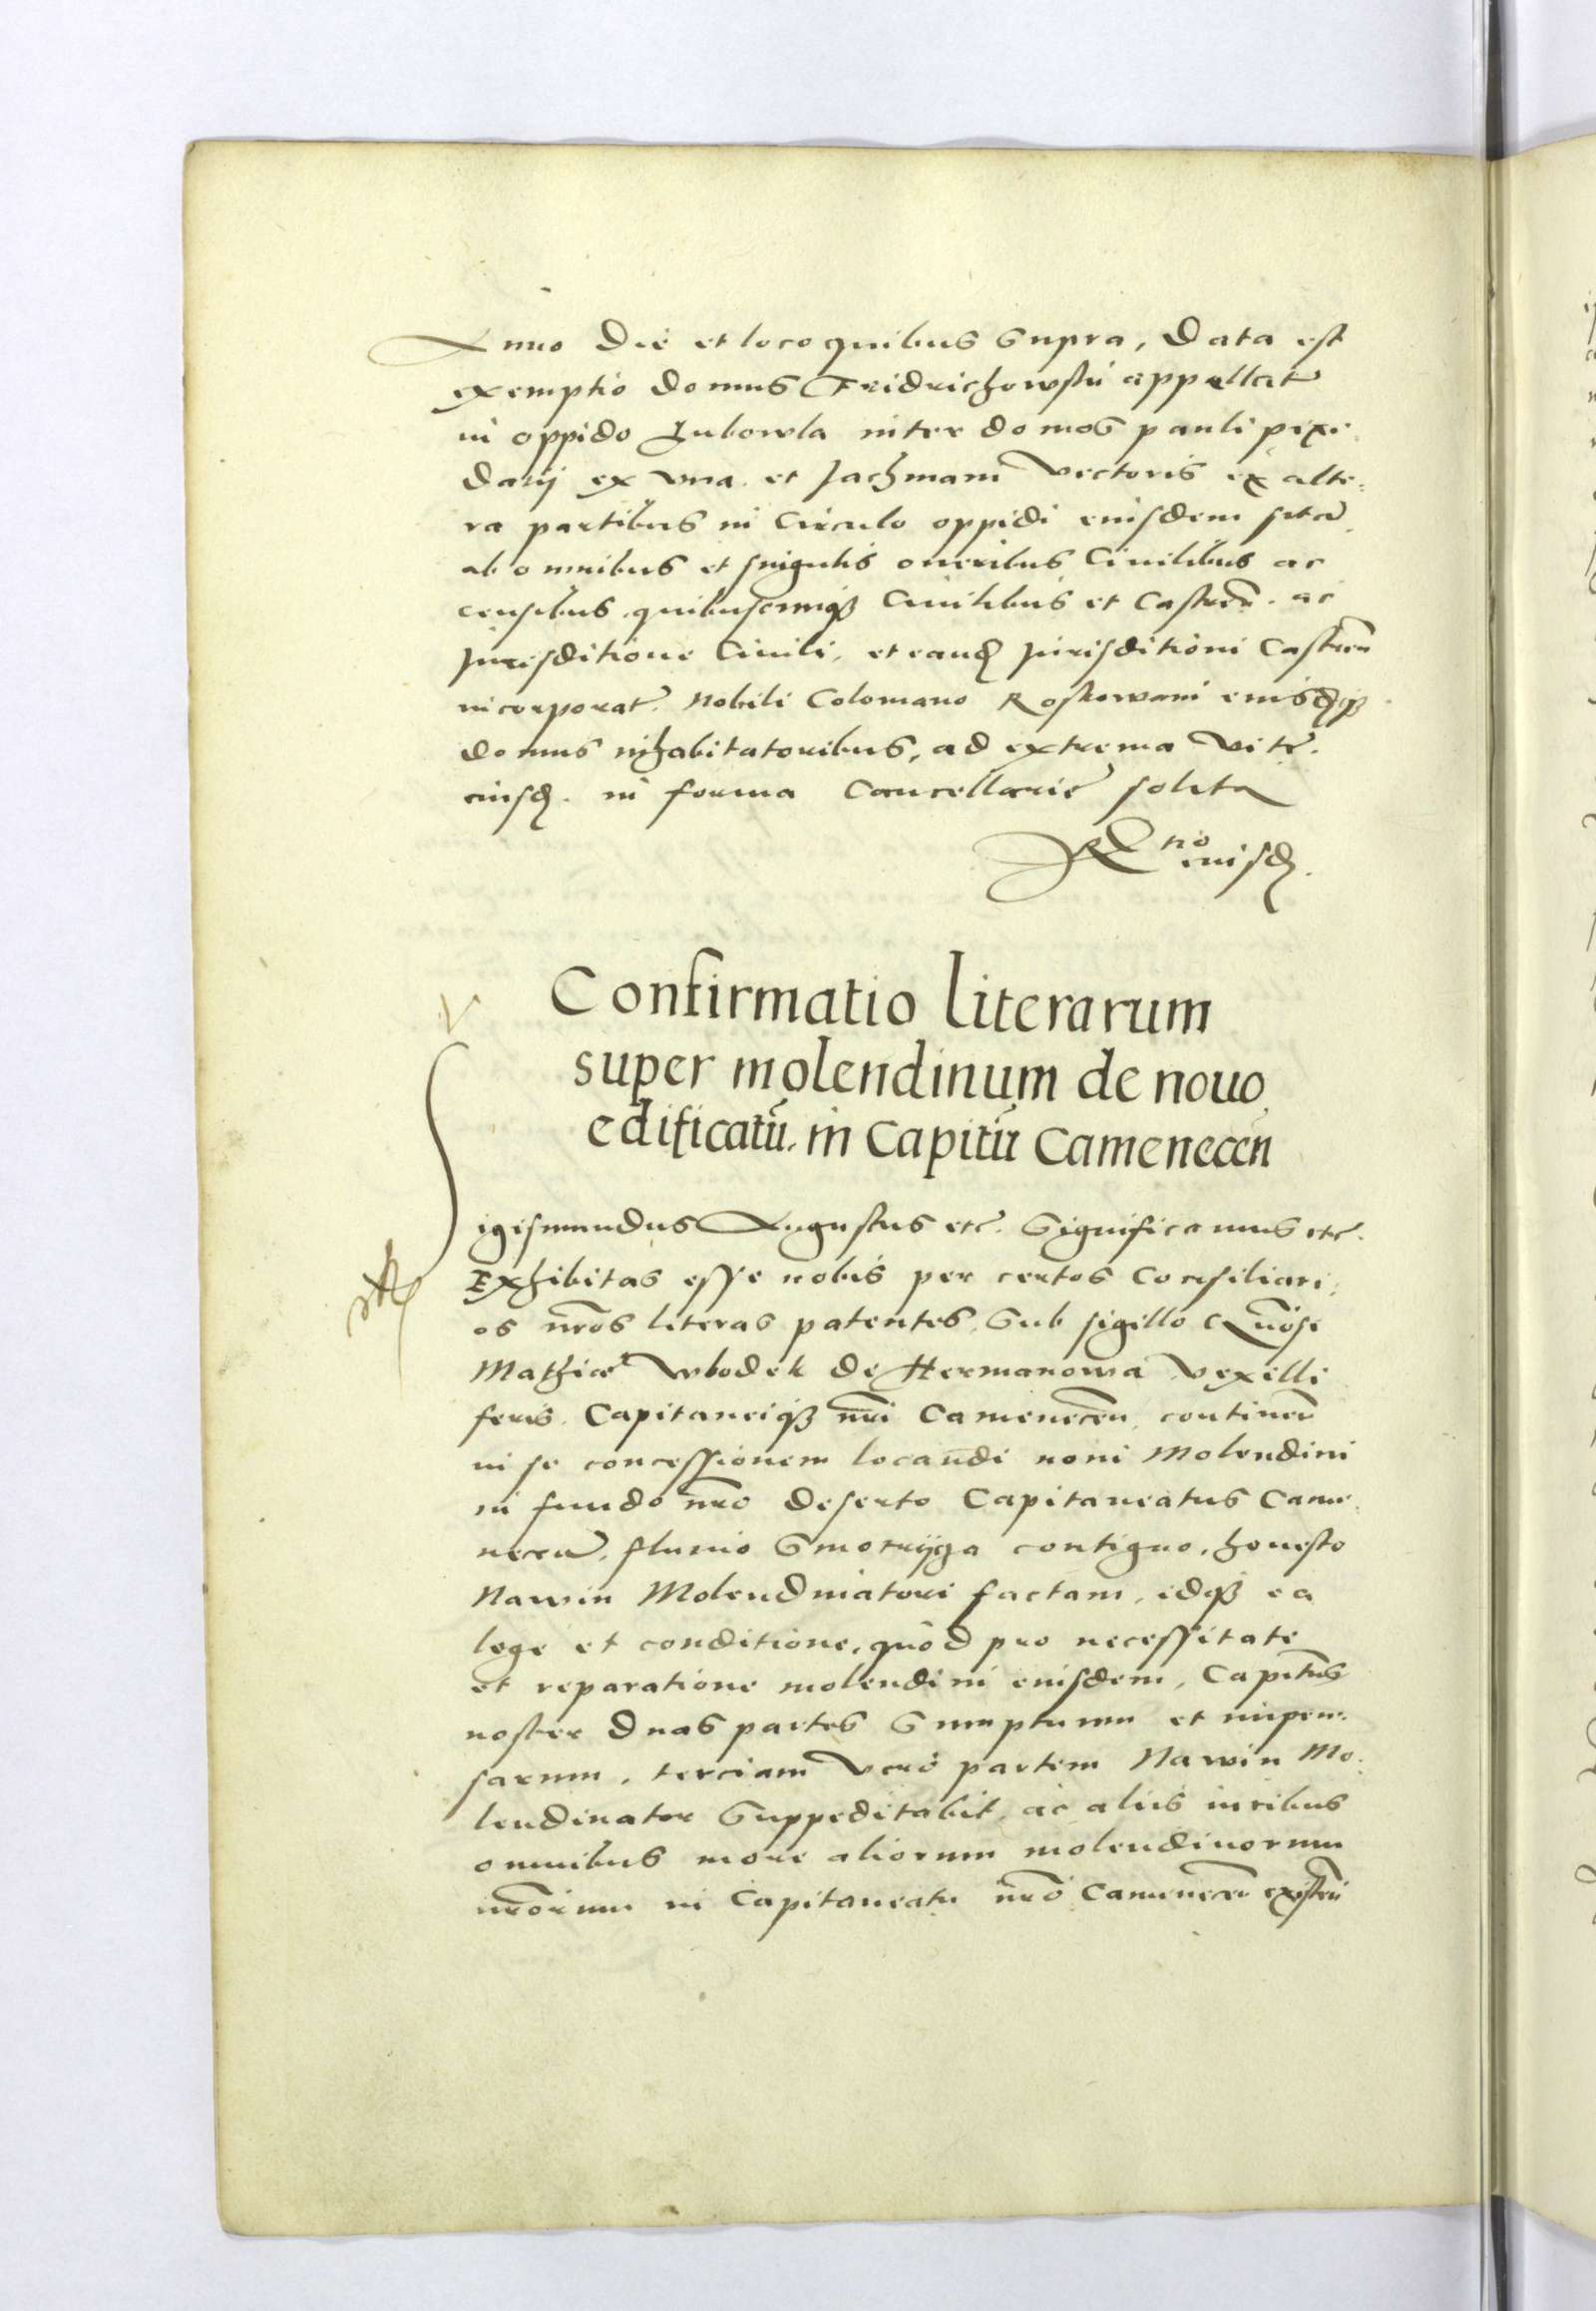 Anno die et loco quibus supra, data est
exemptio domus Fridrichowski appellat
in oppido Lubowla inter domos pauli pixi
darij ex vna et Jachmani vectoris ex alte=
ra partibus in Circulo oppidi eiusdem sitæ
ab omnibus et singulis oneribus Ciuilibus ac
censibus quibuscunqȝ Ciuilibus et Castren̄. ac
Jurisditione Ciuili, et eand Jurisditioni Castren̄
incorporat. Nobili Colomano Roskowani eiusdqȝ
domus inhabitatoribus, ad extrema vite.
eiusd. in forma Cancellarie solita
Rtio eiusd.
Confirmatio literarum
super molendinum de nouo
edificatū. in Capitū Camenecen
Sigismundus Augustus etc. Significamus etc.
Exhibitas esse nobis per certos Consiliari,
os nr̄os literas patentes, sub sigillo Gn̄osi
Mathiæ Wlodek de Hermanowa Vexilli
feris Capitaneiqȝ nr̄i Camenecen̄ continen̄
in se concessionem locandi noui Molendini
in fundo nr̄o deserto Capitaneatus Came
necen̄, fluuio Smotryga contiguo, honesto
Nawin Molendinatori factam, idqȝ ea
lege et conditione, quod pro necessitate
et reparatione molendini eiusdem, Capitn̄s
noster duas partes sumptuum et impen=
sarum, terciam vero partem Nawin Mo=
lendinator suppeditabit, ac aliis iuribus
omnibus more aliorum molendinorum
nr̄orum in Capitaneatu nr̄o Camenecen̄ existen̄